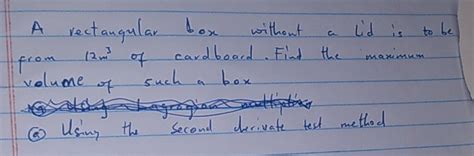 A rectangular box without a lid is to be
from 12m³ of cardboard. Find the maximum
volume of such a box
@ Using the second derivate test method